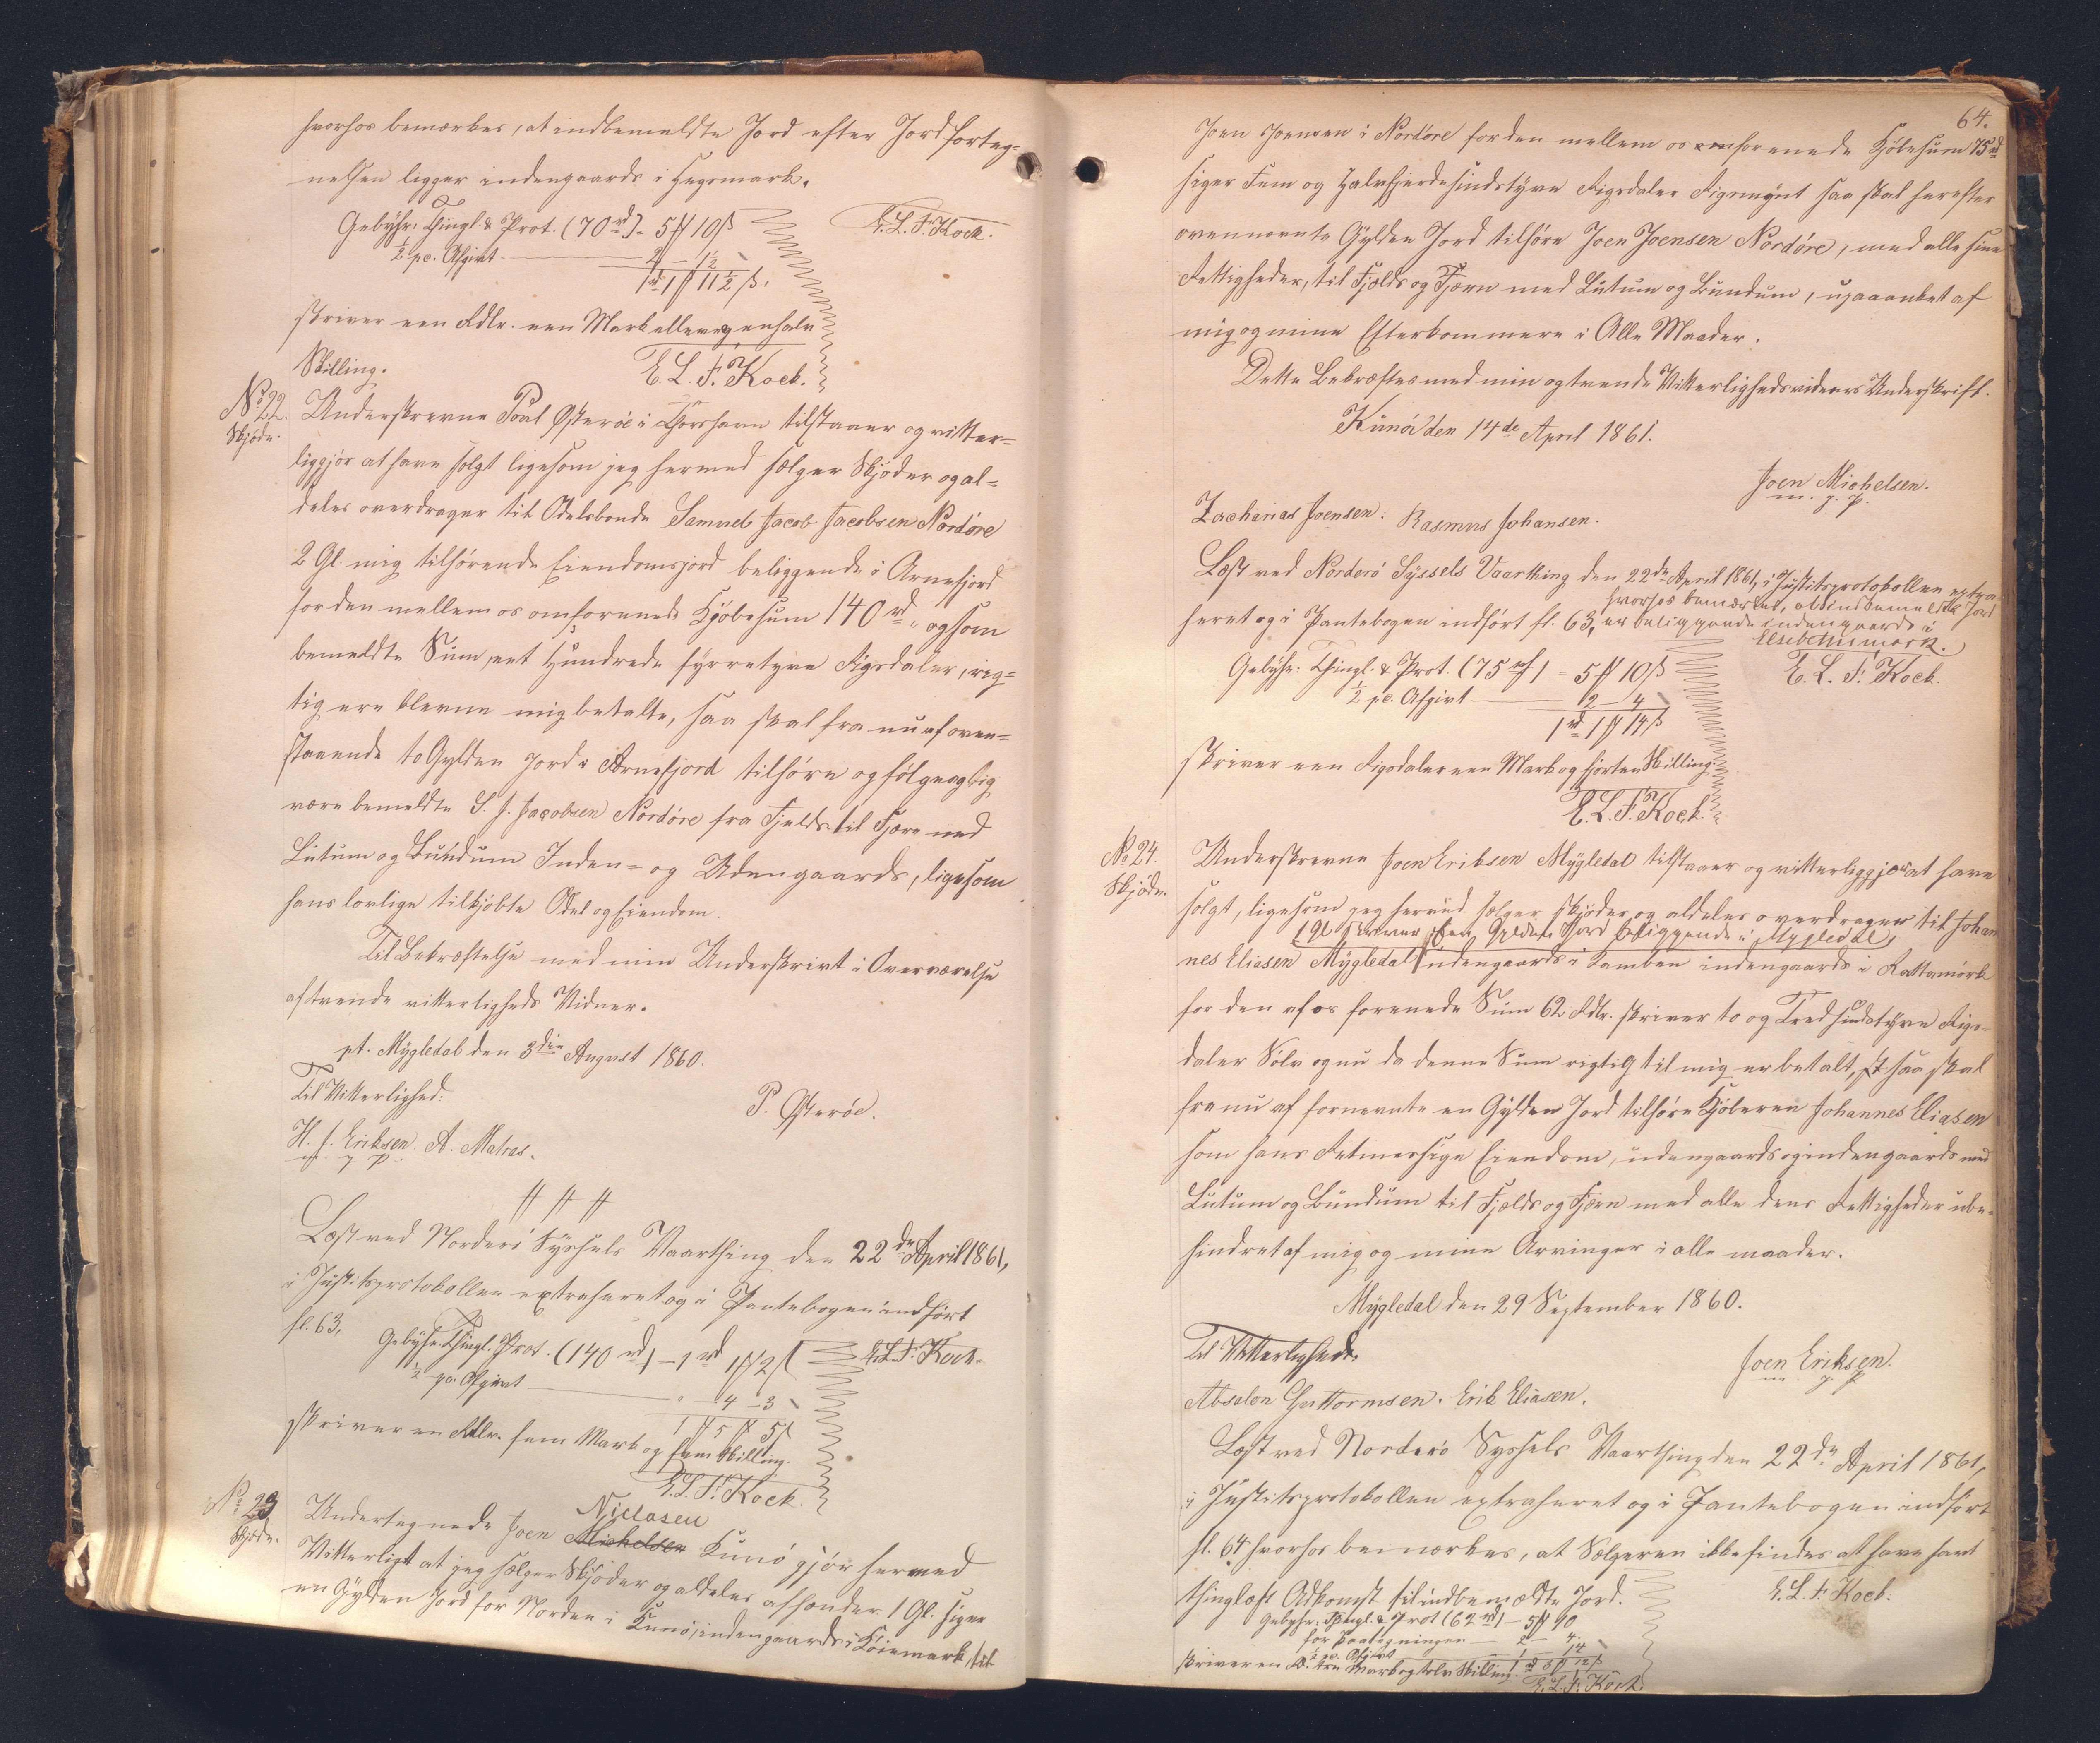 hvorhos bemærkes, at indbemeldte Jord efter Jordforteg-
nelsen ligger indengaards i Hegsmark.
E. L. F. Kock.
Gebyhr: Thingl. & Prot. (70 rd) - 5 ℔ 10 ß
½ pc. Afgivt — 2 - 1½
1 rd 1 ℔ 11½ ß.
skriver een Rdlr. een Mark elleve og en halv
Skilling.
E. L. F. Kock.
No 22.
Skjøde.
Underskrevne Poul Østerøe i Thorshavn tilstaaer og vitter=
liggjør at have solgt ligesom jeg hermed sælger Skjøder og al=
deles overdrager til Odelsbonde Samuel Jacob Jacobsen Nordøre
2 Gl. mig tilhørende Eiendomsjord beliggende i Arnefjord
for den mellem os omforenede Kjøbesum 140 rd, og som
bemeldte Sum, eet Hundrede fyrretyve Rigsdaler, rig=
tig ere blevne mig betalte, saa skal fra nu af oven=
staaende to Gylden Jord i Arnefjord tilhøre og følgeagtig
være bemeldte S. J. Jacobsen Nordøre fra Fjelds til Fjære med
Lutum og Bundum Inden= og Udengaards, ligesom
hans lovlige tilkjøbte Odel og Eiendom.
Til Bekræftelse med min Underskrivt i Overværelse
af tvende vitterligheds Vidner.
pt. Mygledal den 3die August 1860.
Til Vitterlighed:
P. Østerøe.
H. J. Eriksen. A. Matras.
m. f. P.
Læst ved Norderø Syssels Vaarthing den 22de April 1861,
i Justitsprotokollen extraheret og i Pantebogen indført
fl. 63.
E. L. F. Kock.
Gebyhr Thingl. Prot. (140 rd) — 1 rd 1 ℔ 2 ß
½ pc. Afgivt — " - 4 - 3
1 ℔ 5 ℔ 5 ß
skriver en Rdlr. fem Mark og fem Skilling.
E. L. F. Kock.
No 23
Skjøde.
Niclasen
Undertegnede Joen Michelsen Kunø gjør hermed
Vitterligt at jeg sælger Skjøder og aldeles afhænder 1 Gl. siger
en Gylden Jord for Norden i Kunø, indengaards i Køiemark, til
64.
Joen Joensen i Nordøre for den mellem os omforenede Kjøbesum 75 rd
siger Fem og Halvfjerdesindstyve Rigsdaler Rigsmynt saa skal herefter
ovennævnte Gylden Jord tilhøre Joen Joensen Nordøre, med alle sine
Rettigheder, til Fjelds og Fjærn med Lutum og Bundum, upaaanket af
mig og mine Efterkommere i Alle Maader.
Dette Bekræftes med min og tvende Vitterlighedsvidners Underskrift.
Kunø den 14de April 1861.
Joen Michelsen.
m. f. P.
Zacharias Joensen. Rasmus Johansen.
Læst ved Norderø Syssels Vaarthing den 22de April 1861, i Justitsprotokollen extra-
hvorhos bemærkes, at indbemeldte Jord
heret og i Pantebogen indført fl. 63, er beliggende indengaards i
Elsebethsmørk.
E. L. F. Kock.
Gebyhr: Thingl. & Prot. (75 rd) - 5 ℔ 10 ß
½ pc. Afgivt — 2 - 4
1 rd 1 ℔ 14 ß
skriver een Rigsdaler een Mark og fjorten Skilling
E. L. F. Kock.
No 24.
Skjøde.
Underskrevne Joen Eriksen Mygledal tilstaaer og vitterliggjør at have
solgt, ligesom jeg herved sælger skjøder og aldeles overdrager til Johan
1 Gl. skriver Een Gylden Jord beliggende i Mygledal,
nes Eliasen Mygledal indengaards i Kamben indengaards i Kattamørk
for den af os forenede Sum 62 Rdlr. skriver to og Tredsindstyve Rigs-
daler Sølv og nu da denne Sum rigtig til mig er betalt, saa skal
fra nu af fornevnte en Gylden Jord tilhøre Kjøberen Johannes Eliasen
som hans Retmessige Eiendom, udengaards og indengaards med
Lutum og Bundum til Fjelds og Fjern med alle dens Rettigheder ube-
hindret af mig og mine Arvinger i alle maader.
Mygledal den 29 September 1860.
Til Vitterlighed.
Joen Eriksen.
m. f. P.
Absalon Guttormsen. Erik Eliasen.
Læst ved Norderø Syssels Vaarthing den 22de April 1861,
i Justitsprotokollen extraheret og i Pantebogen indført
fl. 64 hvorhos bemærkes, at Sælgeren ikke findes at have havt
thinglæst Adkomst til indbemeldte Jord.
E. L. F. Kock.
Gebyhr: Thingl. & Prot (62 rd) — 5 ℔ 10
for Paategningen — 2 - 4.
½ pc. Afgivt — 1 - 14
skriver en Rd. tre Mark og tolv Skilling. 1 rd 3 ℔ 12 ß
E. L. F. Kock.